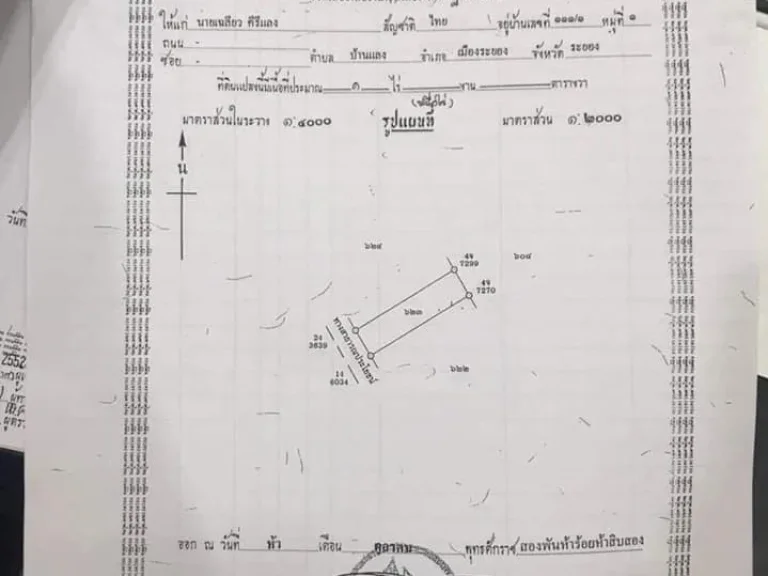 ให้แก่ นายเฉลียว คีรีแลง สัญชาติ ไทย อยู่บ้านเลขที่ ๑๑๑/๑ หมู่ที่ ๑
ถนน -
ซอย - ตำบล บ้านแลง อำเภอ เมืองระยอง จังหวัด ระยอง
ที่ดินแปลงนี้มีเนื้อที่ประมาณ ๑ ไร่ งาน ตารางวา
(หนึ่งไร่)
มาตราส่วนในระวาง ๑:๔๐๐๐ รูปแผนที่ มาตราส่วน ๑:๒๐๐๐
น
วันที่
๖๒๔
4ข
7299
๖๐๔
4ข
7270
๖๒๓
ทางสาธารณประโยชน์
3639
6034
๖๒๒
2552
ออก ณ วันที่ ห้า เดือน ตุลาคม พุทธศักราช สองพันห้าร้อยห้าสิบสอง